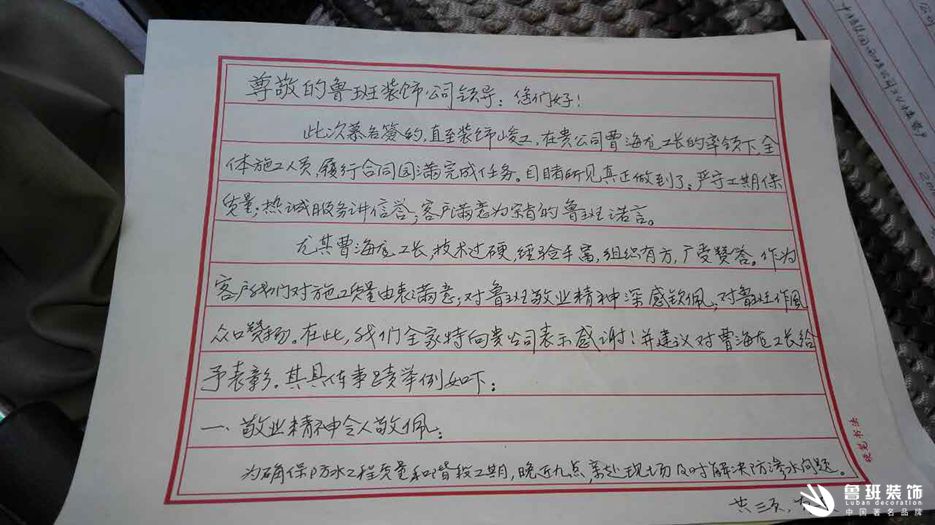 尊敬的鲁班装饰公司领导：您们好！
此次慕名签约，直至装饰峻工，在贵公司曹海龙工长的率领下，全
体施工人员，履行合同圆满完成任务。目睹所见真正做到了：严守工期保
质量；热诚服务讲信誉；客户满意为宗旨的鲁班诺言。
尤其曹海龙工长，技术过硬，经验丰富，组织有方，广受赞誉。作为
客户我们对施工质量由衷满意；对鲁班敬业精神深感钦佩，对鲁班作风
众口赞扬。在此，我们全家特向贵公司表示感谢！并建议对曹海龙工长给
予表彰。其具体事迹举例如下：
一、敬业精神令人敬佩：
为确保防水工程质量和工期，晚近九点，亲赴现场及时解决防渗水问题。
共三页，
硬笔书法
鲁班装饰
Luban decoration
中国著名品牌